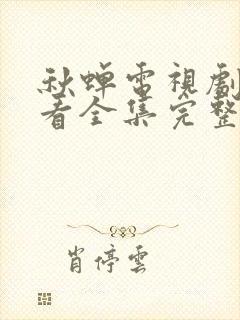 秋蝉電視劇
看全集完整
肖停雲